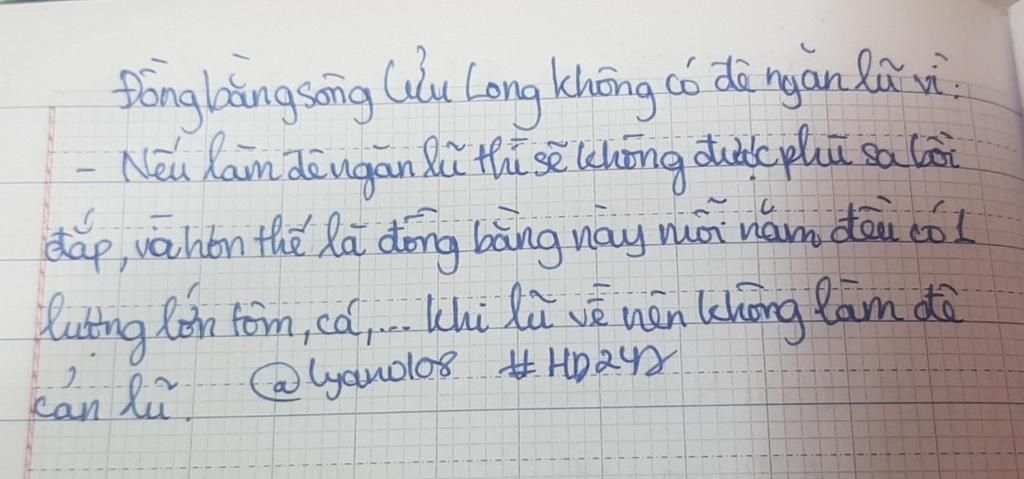 Đồng bằng sông Cửu Long không có đê ngăn lũ vì:
- Nếu làm đê ngăn lũ thì sẽ không được phù sa bồi
đắp, và hơn thế là đồng bằng này mỗi năm đều có 1
lượng lớn tôm, cá,... khi lũ về nên không làm đê
cản lũ. @lyano108 #HD247